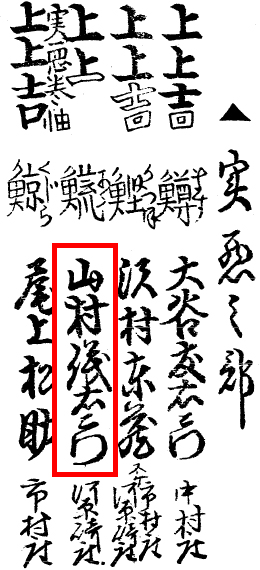 ▲実悪之部
上上吉 鱒 ます 大谷友右衛門 中村座
上上吉 沢村東蔵 市村座 河原崎座
上上 山村儀右衛門 河原崎座
実悪巻軸
上上吉 鯨 くじら 尾上松助 市村座